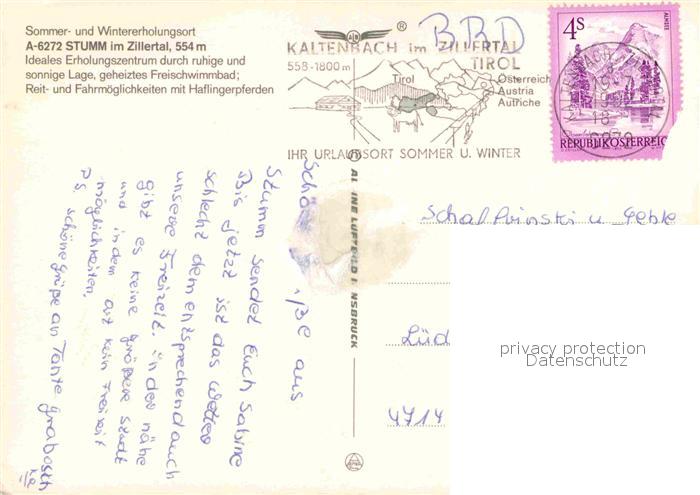 Sommer- und Wintererholungsort
A-6272 STUMM im Zillertal, 554 m
Ideales Erholungszentrum durch ruhige und
sonnige Lage, geheiztes Freischwimmbad;
Reit- und Fahrmöglichkeiten mit Haflingerpferden
®
BRD
KALTENBACH im ZILLERTAL
TIROL
558-1800 m
Tirol
Österreich
Austria
Autriche
IHR URLAUBSORT SOMMER U. WINTER
4S
ALMSEE
REPUBLIK ÖSTERREICH
aus
Stumm sendet Euch Sabine
Bis jetzt ist das Wetter
schlecht dementsprechend auch
unsere Freizeit. In der nähe
gibt es keine größere Stadt
und in dem ort kein Freizeit
möglichkeiten.
P.S. schöne grüße an Tante
ALPINE LUFTBILD INNSBRUCK
u.
Lüd
4714
privacy protection
Datenschutz